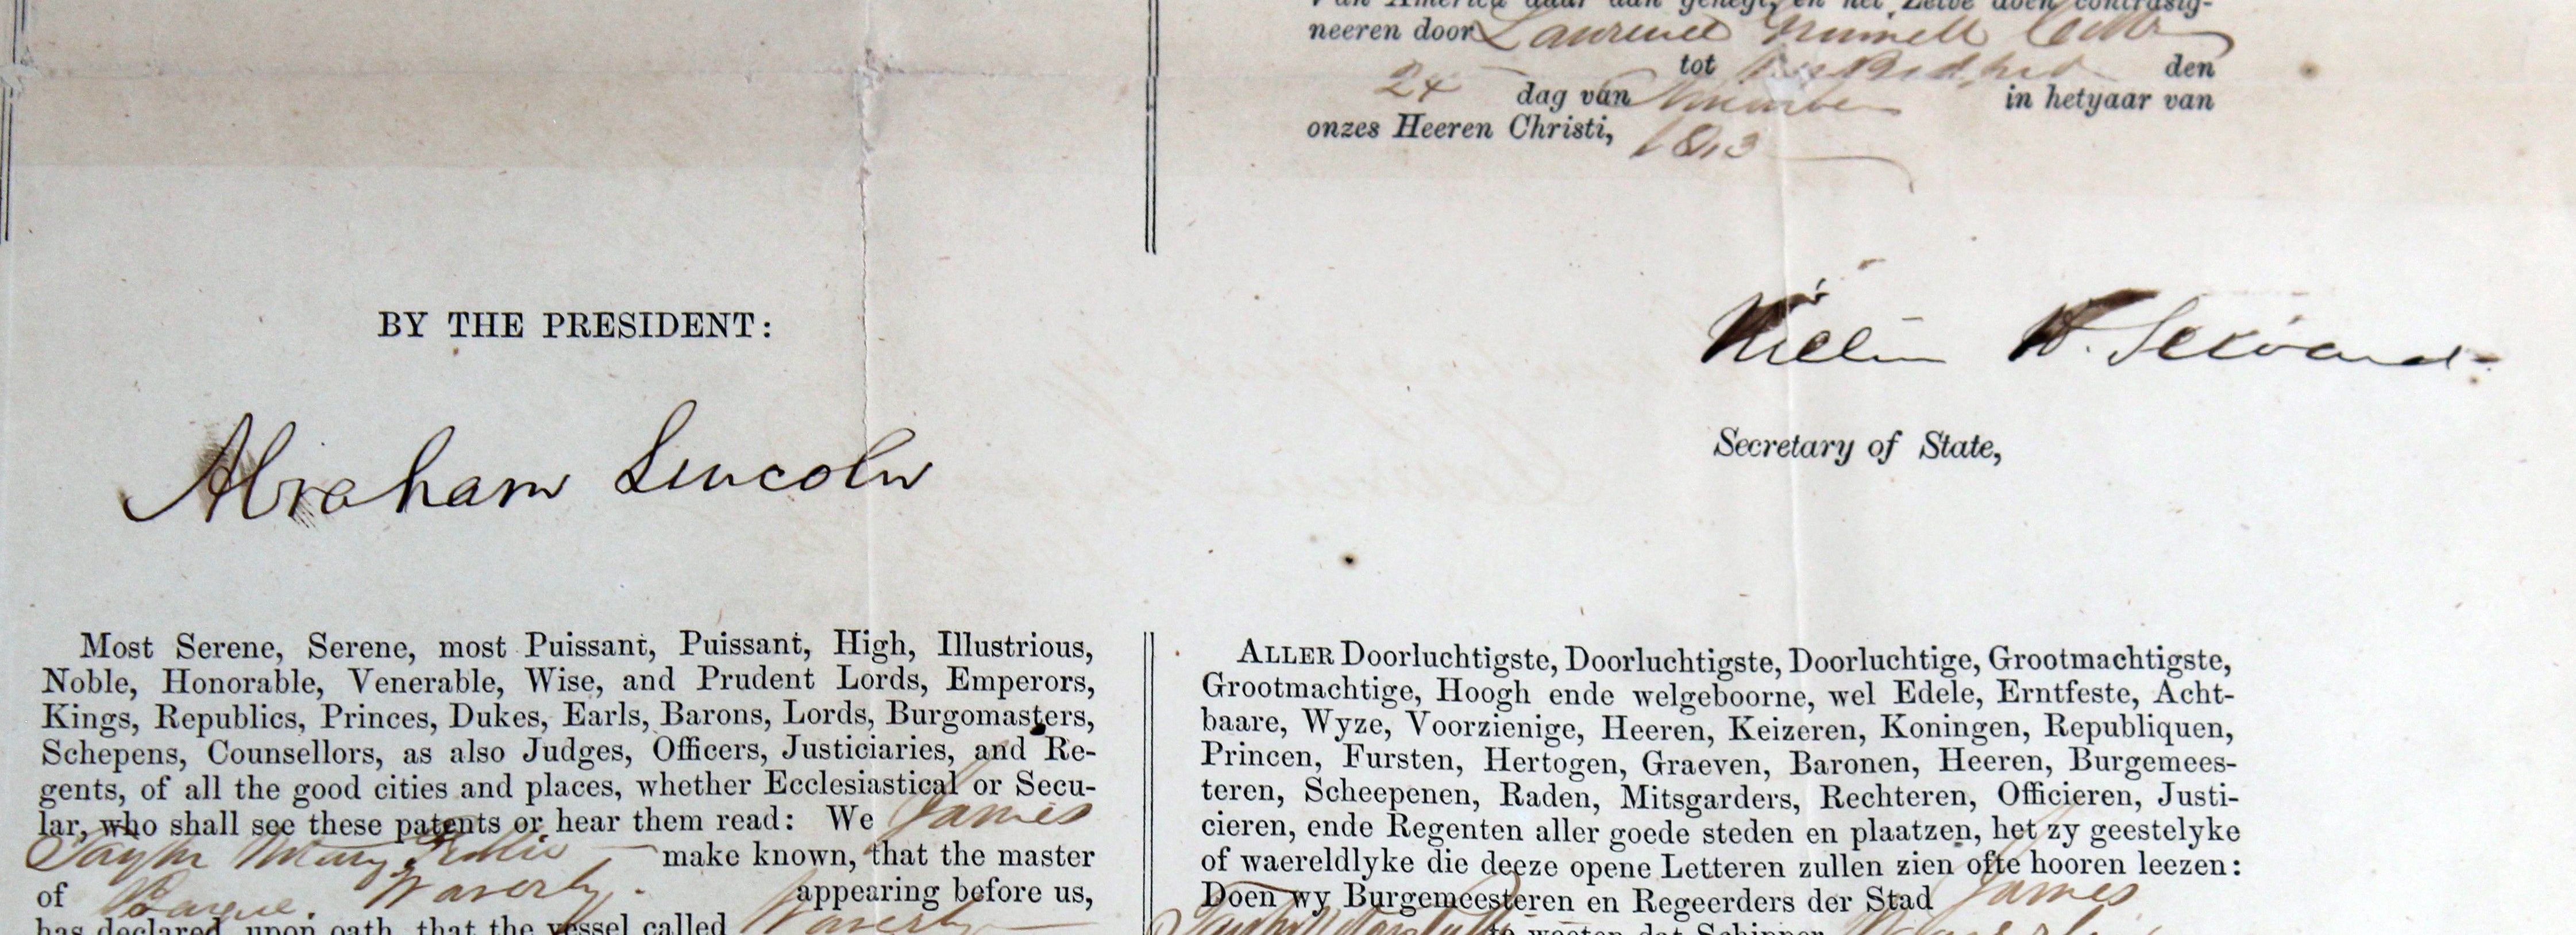 neeren door Laurence Grinnell Collr
tot New Bedford den
24 dag van November in hetyaar van
onzes Heeren Christi, 1863
BY THE PRESIDENT:
Abraham Lincoln
William H. Seward
Secretary of State,
Most Serene, Serene, most Puissant, Puissant, High, Illustrious,
Noble, Honorable, Venerable, Wise, and Prudent Lords, Emperors,
Kings, Republics, Princes, Dukes, Earls, Barons, Lords, Burgomasters,
Schepens, Counsellors, as also Judges, Officers, Justiciaries, and Re-
gents, of all the good cities and places, whether Ecclesiastical or Secu-
lar, who shall see these patents or hear them read: We James
Taylor make known, that the master
of Barque Waverly. appearing before us,
has declared, upon oath, that the vessel called Waverly
ALLER Doorluchtigste, Doorluchtigste, Doorluchtige, Grootmachtigste,
Grootmachtige, Hoogh ende welgeboorne, wel Edele, Erntfeste, Acht-
baare, Wyze, Voorzienige, Heeren, Keizeren, Koningen, Republiquen,
Princen, Fursten, Hertogen, Graeven, Baronen, Heeren, Burgemees-
teren, Scheepenen, Raden, Mitsgarders, Rechteren, Officieren, Justi-
cieren, ende Regenten aller goede steden en plaatzen, het zy geestelyke
of waereldlyke die deeze opene Letteren zullen zien ofte hooren leezen:
Doen wy Burgemeesteren en Regeerders der Stad James
te weeten dat Schipper